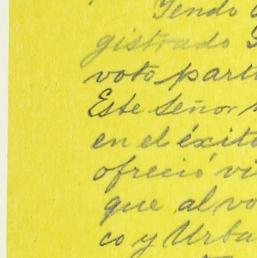 Yendo a
gistrado
voto part
Este Señor
en el éxito
ofreció vi
que al vo
co y Urba